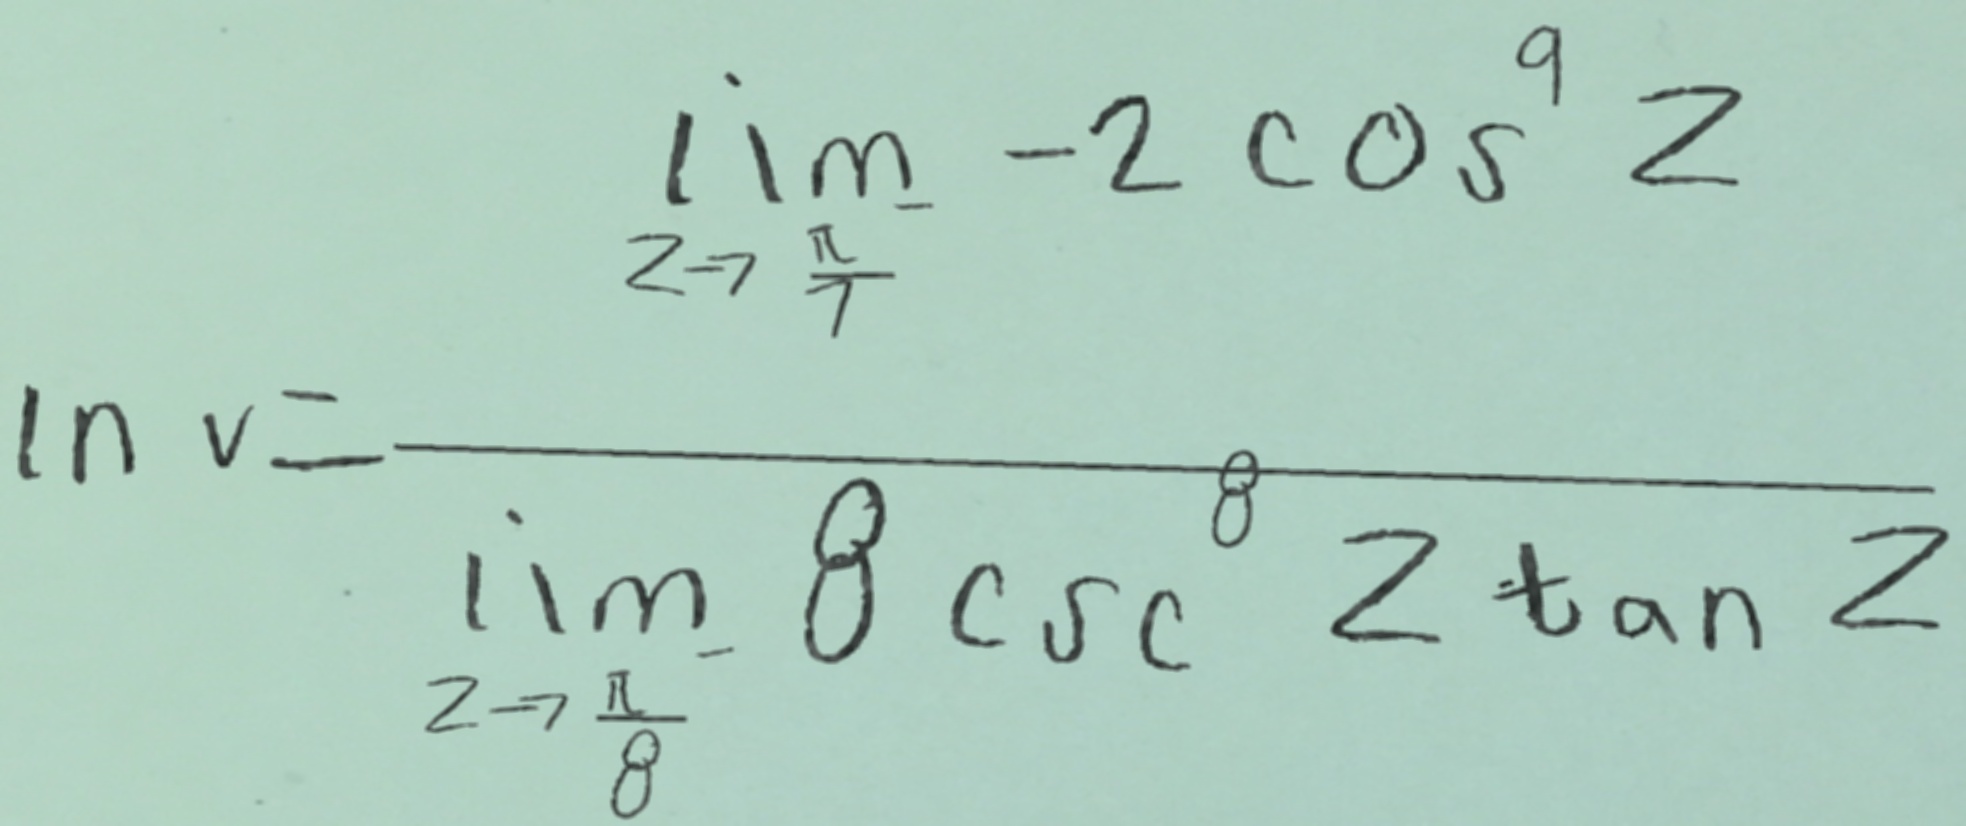 \ln v = \frac{\lim_{z \to \frac{\pi}{7}} -2 \cos^9 z}{\lim_{z \to \frac{\pi}{8}} 8 \csc^8 z \tan z}